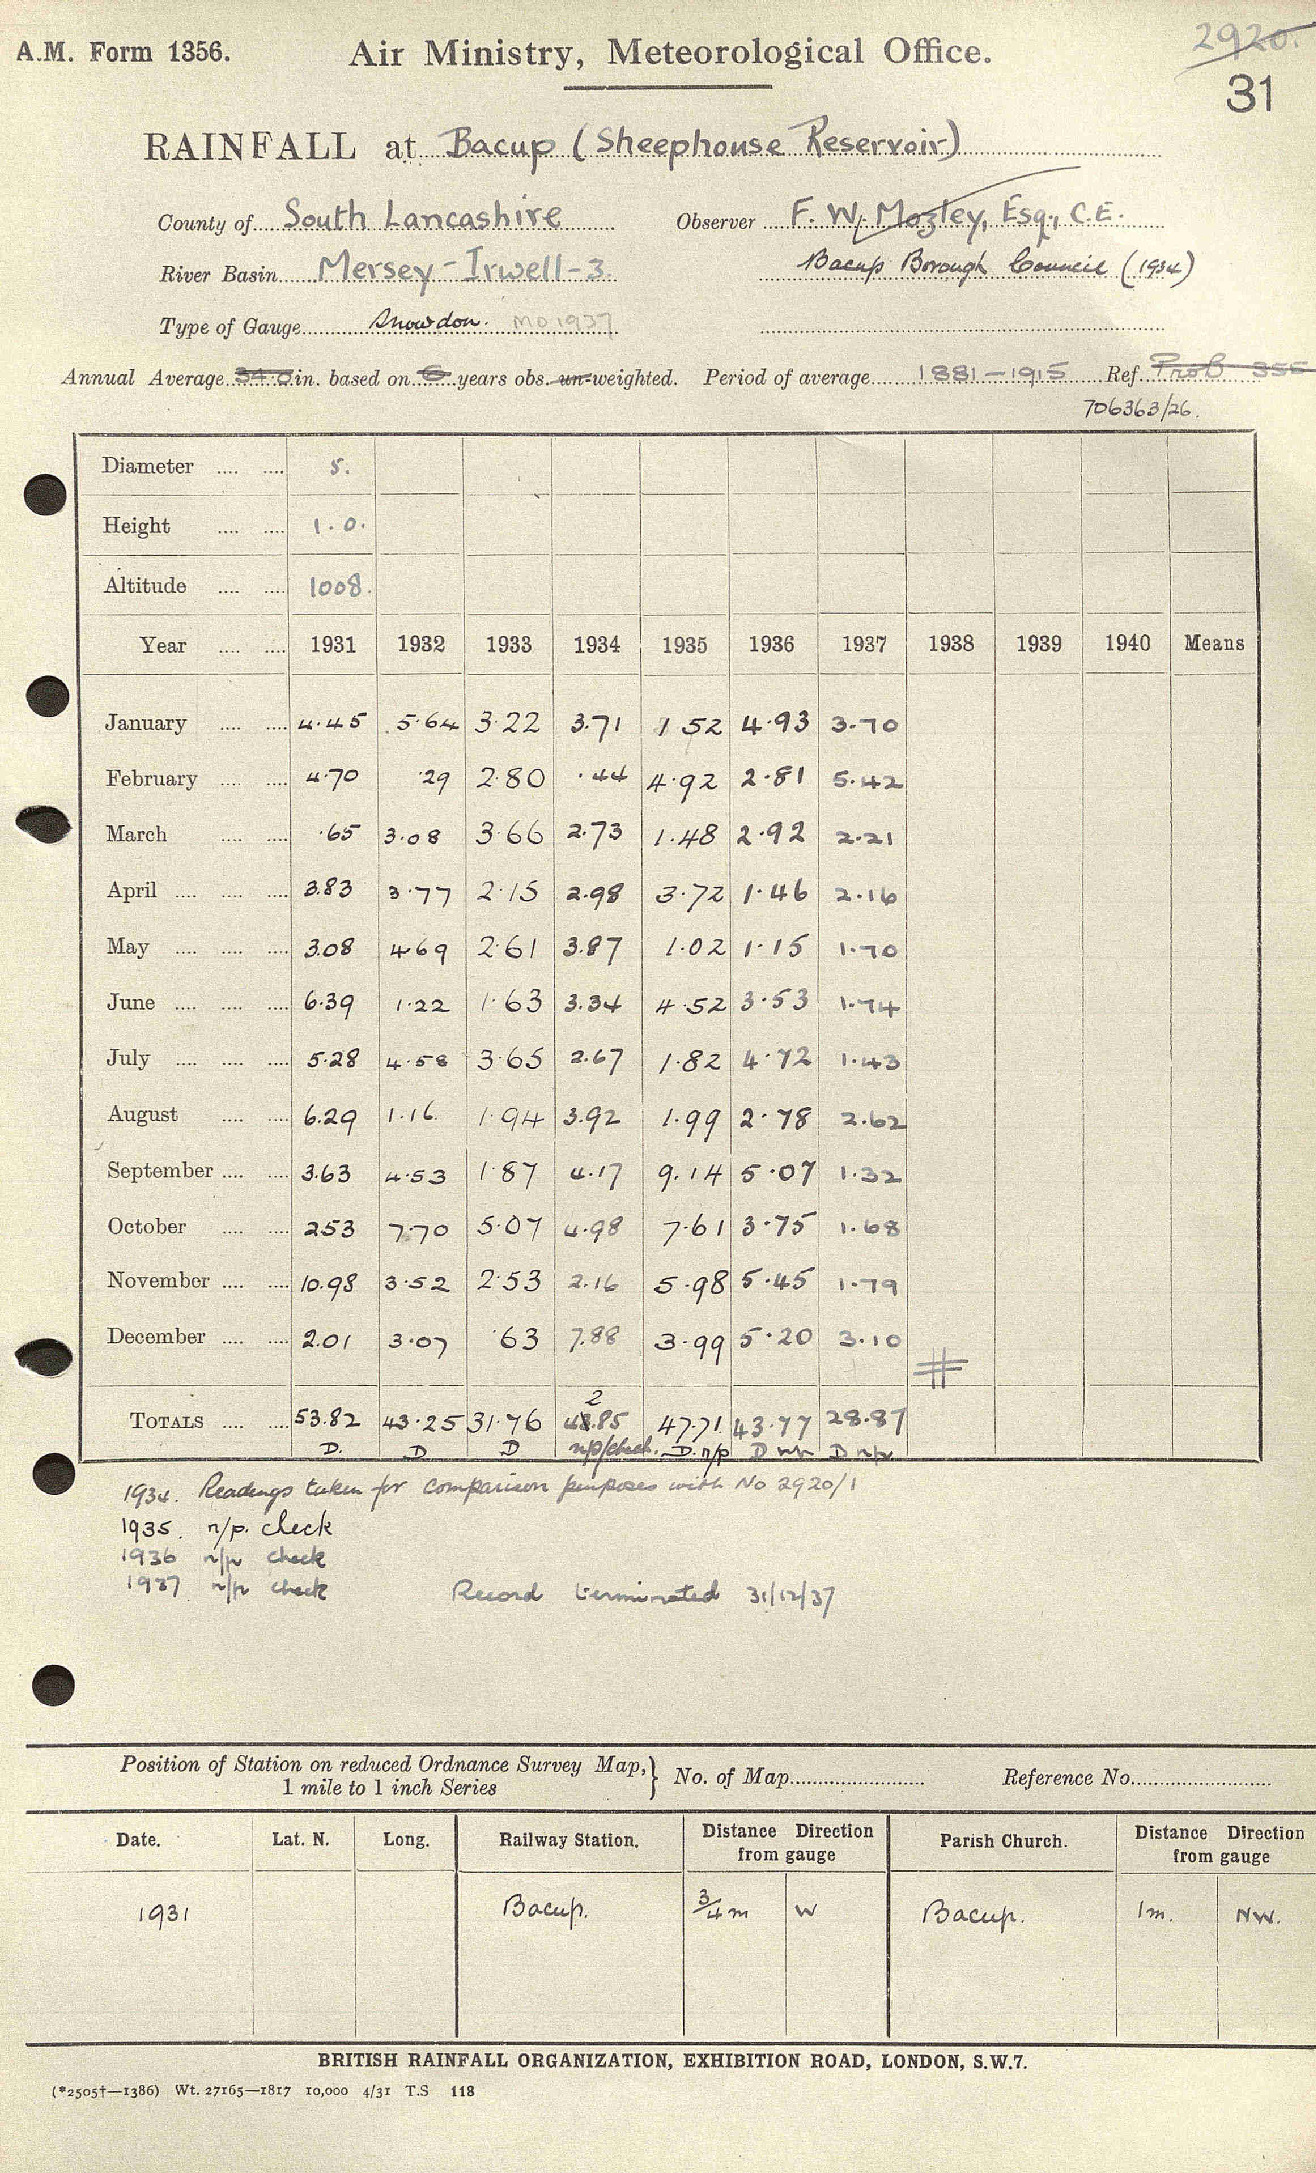 2920.
A.M. Form 1356. Air Ministry, Meteorological Office.
31
RAINFALL at Bacup (Sheephouse Reservoir)
County of South Lancashire Observer F. W. Mozley, Esq., C.E.
River Basin Mersey-Irwell-3. Bacup Borough Council (1934)
Type of Gauge Snowdon. MO 1937
Annual Average 34.0 in. based on 6 years obs. un-weighted. Period of average 1881-1915 Ref. Prob 355
706363/26.
Diameter 5.
Height 1.0.
Altitude 1008.
Year 1931 1932 1933 1934 1935 1936 1937 1938 1939 1940 Means
January 4.45 5.64 3.22 3.71 1 52 4.93 3.70
February 4.70 .29 2.80 .44 4.92 2.81 5.42
March .65 3.08 3.66 2.73 1.48 2.92 2.21
April 3.83 3.77 2.15 2.98 3.72 1.46 2.16
May 3.08 4 69 2.61 3.87 1.02 1.15 1.70
June 6.39 1.22 1.63 3.34 4.52 3.53 1.74
July 5.28 4.58 3.65 2.67 1.82 4.72 1.43
August 6.29 1.16 1.94 3.92 1.99 2.78 2.62
September 3.63 4.53 1.87 4.17 9.14 5.07 1.32
October 2 53 7.70 5.07 4.98 7.61 3.75 1.68
November 10.98 3.52 2.53 2.16 5.98 5.45 1.79
December 2.01 3.07 .63 7.88 3.99 5.20 3.10
2
TOTALS 53.82 43.25 31.76 .85 47.71 43.77 28.87
D. D D n/p/check. D. n/p D n/p D n/p
1934. Readings taken for comparison purposes with No 2920/1
1935. n/p. check
1936 n/p check
1937 n/p check Record terminated 31/12/37
Position of Station on reduced Ordnance Survey Map, 1 mile to 1 inch Series } No. of Map Reference No.
Date. Lat. N. Long. Railway Station. Distance Direction from gauge Parish Church. Distance Direction from gauge
1931 Bacup. 3/4 m W Bacup. 1m. NW.
BRITISH RAINFALL ORGANIZATION, EXHIBITION ROAD, LONDON, S.W.7.
(*2505†—1386) Wt. 27165—1817 10,000 4/31 T.S 118